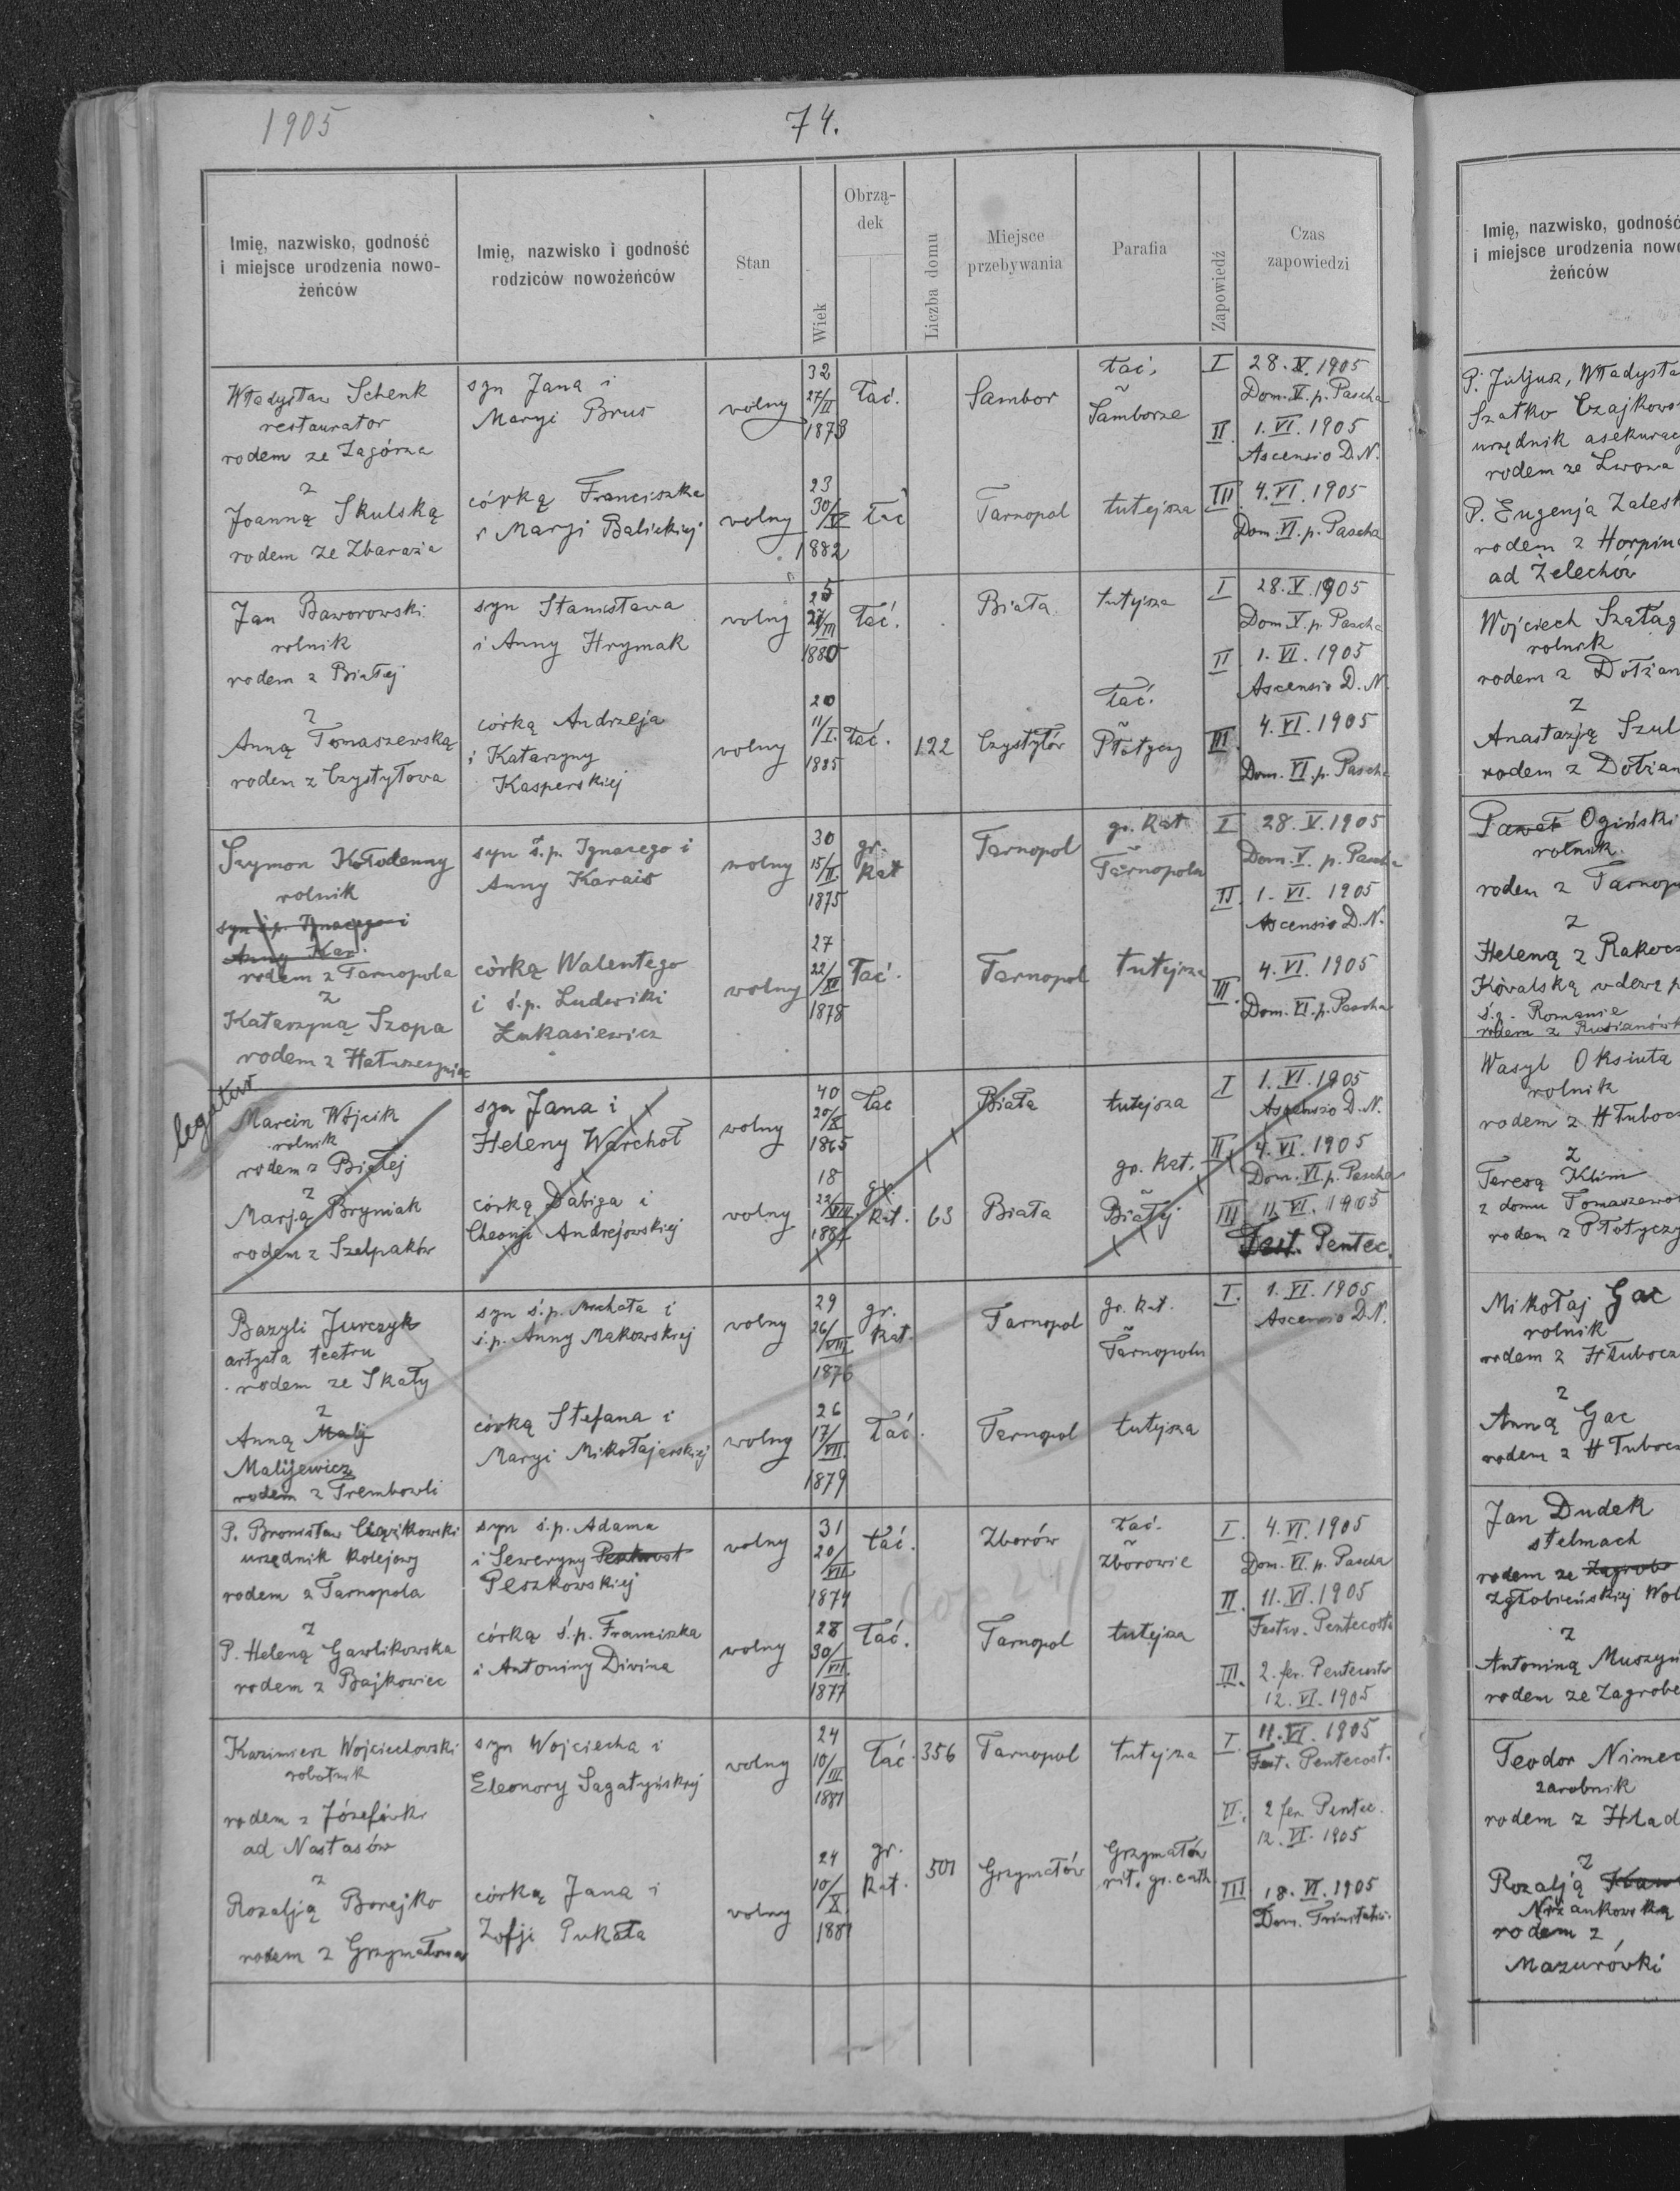 1905
74.
Imię, nazwisko, godność
i miejsce urodzenia nowo-
żeńców
Imię, nazwisko i godność
rodziców nowożeńców
Stan
Wiek
Obrzą-
dek
Liczba domu
Miejsce
przebywania
Parafia
Zapowiedź
Czas
zapowiedzi
Władysław Schenk
restaurator
rodem ze Zagórza
z
Joanną Skulską
rodem ze Zbaraża
syn Jana i
Maryi Brus
córką Franciszka
i Maryi Balickiej
wolny
wolny
32
27/II
1873
23
30/IV
1882
łać.
łać
Sambor
Tarnopol
łać.
Samborze
tutejsza
I 28. V. 1905
Dom. V. p. Pascha
II. 1. VI. 1905
Ascensio D.N.
III 4. VI. 1905
Dom. VI. p. Pascha
Jan Baworowski
rolnik
rodem z Białej
z
Anną Tomaszewską
rodem z Czystyłowa
syn Stanisława
i Anny Hrymak
córką Andrzeja
i Katarzyny
Kasperskiej
wolny
wolny
25
27/III
1880
20
11/I.
1885
łać.
łać.
122
Biała
Czystyłów
tutejsza
łać.
Płotyczy
I 28. V. 1905
Dom V. p. Pascha
II 1. VI. 1905
Ascensio D. N.
III. 4. VI. 1905
Dom. VI. p. Pascha
Szymon Kołodenny
rolnik
syn ś.p. Ignacego i
Anny Kar.
rodem z Tarnopola
z
Katarzyną Szopa
rodem z Hałuszczyniec
syn ś.p. Ignacego i
Anny Karais
córką Walentego
i ś.p. Ludwiki
Łukasiewicz
wolny
wolny
30
15/II.
1875
27
22/XI
1878
gr.
kat
łać.
Tarnopol
Tarnopol
gr. kat
Tarnopolu
tutejsza
I 28. V. 1905
Dom. V. p. Pascha
II. 1. VI. 1905
Ascensio D.N.
III. 4. VI. 1905
Dom. VI. p. Pascha
Marcin Wójcik
rolnik
rodem z Białej
z
Marją Bryniak
rodem z Szelpaków
syn Jana i
Heleny Warchoł
córką Dabiga i
Cheonji Andrejowskiej
wolny
wolny
40
20/X
1865
18
22/VII.
1887
łać
gr.
kat.
63
Biała
Biała
tutejsza
gr. kat.
Białej
I 1. VI. 1905
Ascensio D.N.
II. 4. VI. 1905
Dom. VI. p. Pascha
III 11. VI. 1905
Fest. Pentec.
Bazyli Jurczyk
artysta teatru
rodem ze Skały
z
Anną Malj
Malijewicz
rodem z Trembowli
syn ś.p. Michała i
ś.p. Anny Makowskiej
córką Stefana i
Maryi Mikołajewskiej
wolny
wolny
29
26/VIII
1876
26
17/VII.
1879
gr.
kat.
łać.
Tarnopol
Tarnopol
gr. kat.
Tarnopolu
tutejsza
I. 1. VI. 1905
Ascensio D.N.
P. Bronisław Ciążkowski
urzędnik kolejowy
rodem z Tarnopola
z
P. Heleną Gawlikowska
rodem z Bajkowiec
syn ś.p. Adama
i Seweryny
Peszkowskiej
córką ś.p. Franciszka
i Antoniny Divina
wolny
wolny
31
20/VII
1874
28
30/VII.
1877
łać.
łać.
Zborów
Tarnopol
łać.
Zborowie
tutejsza
I. 4. VI. 1905
Dom. VI. p. Pascha
II. 11. VI. 1905
Festiv. Pentecost.
III. 2. fer. Pentecost
12. VI. 1905
Kazimierz Wojciechowski
robotnik
rodem z Józefówki
ad Nastasów
z
Rozalją Borejko
rodem z Grzymałowa
syn Wojciecha i
Eleonory Sagatyńskiej
córką Jana i
Zofji Pukała
wolny
wolny
24
10/III
1881
24
10/X.
1881
łać.
gr.
kat.
356
501
Tarnopol
Grzymałów
tutejsza
Grzymałów
rit. gr. cath
I. 11. VI. 1905
Fest. Pentecost.
II. 2 fer. Pentec.
12. VI. 1905
III 18. VI. 1905
Dom. Trinitatis.
Imię, nazwisko, godność
i miejsce urodzenia nowo
żeńców
P. Juljusz, Władysła
Szatko Czajkows
urzędnik asekuracy
rodem ze Lwowa
P. Eugenja Zalesk
rodem z Horpin
ad Żelechów
Wojciech Szałag
rolnik
rodem z Dołżan
z
Anastazją Szul
rodem z Dołżan
Paweł Ogiński
rolnik
rodem z Tarnop
z
Heleną z Rakocz
Kowalską wdową p
ś.p. Romanie
rodem z Rusianówk
Wasyl Oksiuta
rolnik
rodem z Hłubocz
z
Teresą Klim
z domu Tomaszews
rodem z Płotyczy
Mikołaj Gac
rolnik
rodem z Hłubocz
z
Anną Gac
rodem z Hłubocz
Jan Dudek
stelmach
rodem ze Zagrobe
Zgłobieńskiej Wol
z
Antoniną Muszyń
rodem ze Zagrobe
Teodor Nimec
zarobnik
rodem z Hład
z
Rozalją
Niżankowską
rodem z
Mazurówki